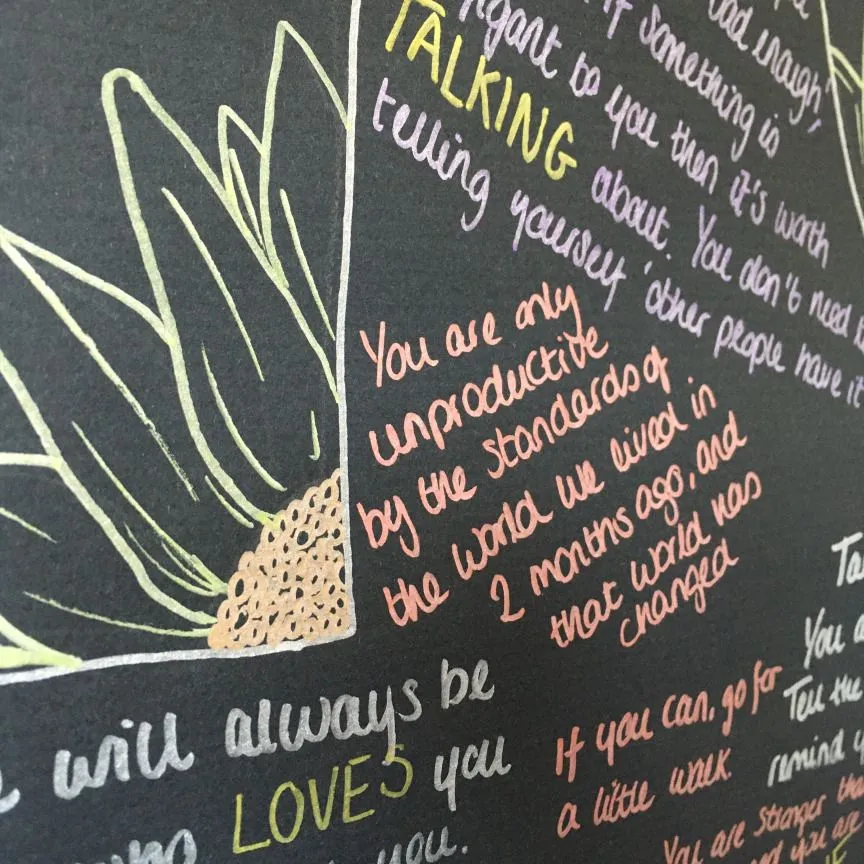 bad enough'
if something is
TALKING
to you then it's worth
about. You don't need
telling yourself 'other people have it
You are only
unproductive
by the standards of
the world we lived in
2 months ago, and
that world has
changed
will always be
LOVES you
you.
If you can, go for
a little walk.
You
Tell the
remind
You are stronger
you are